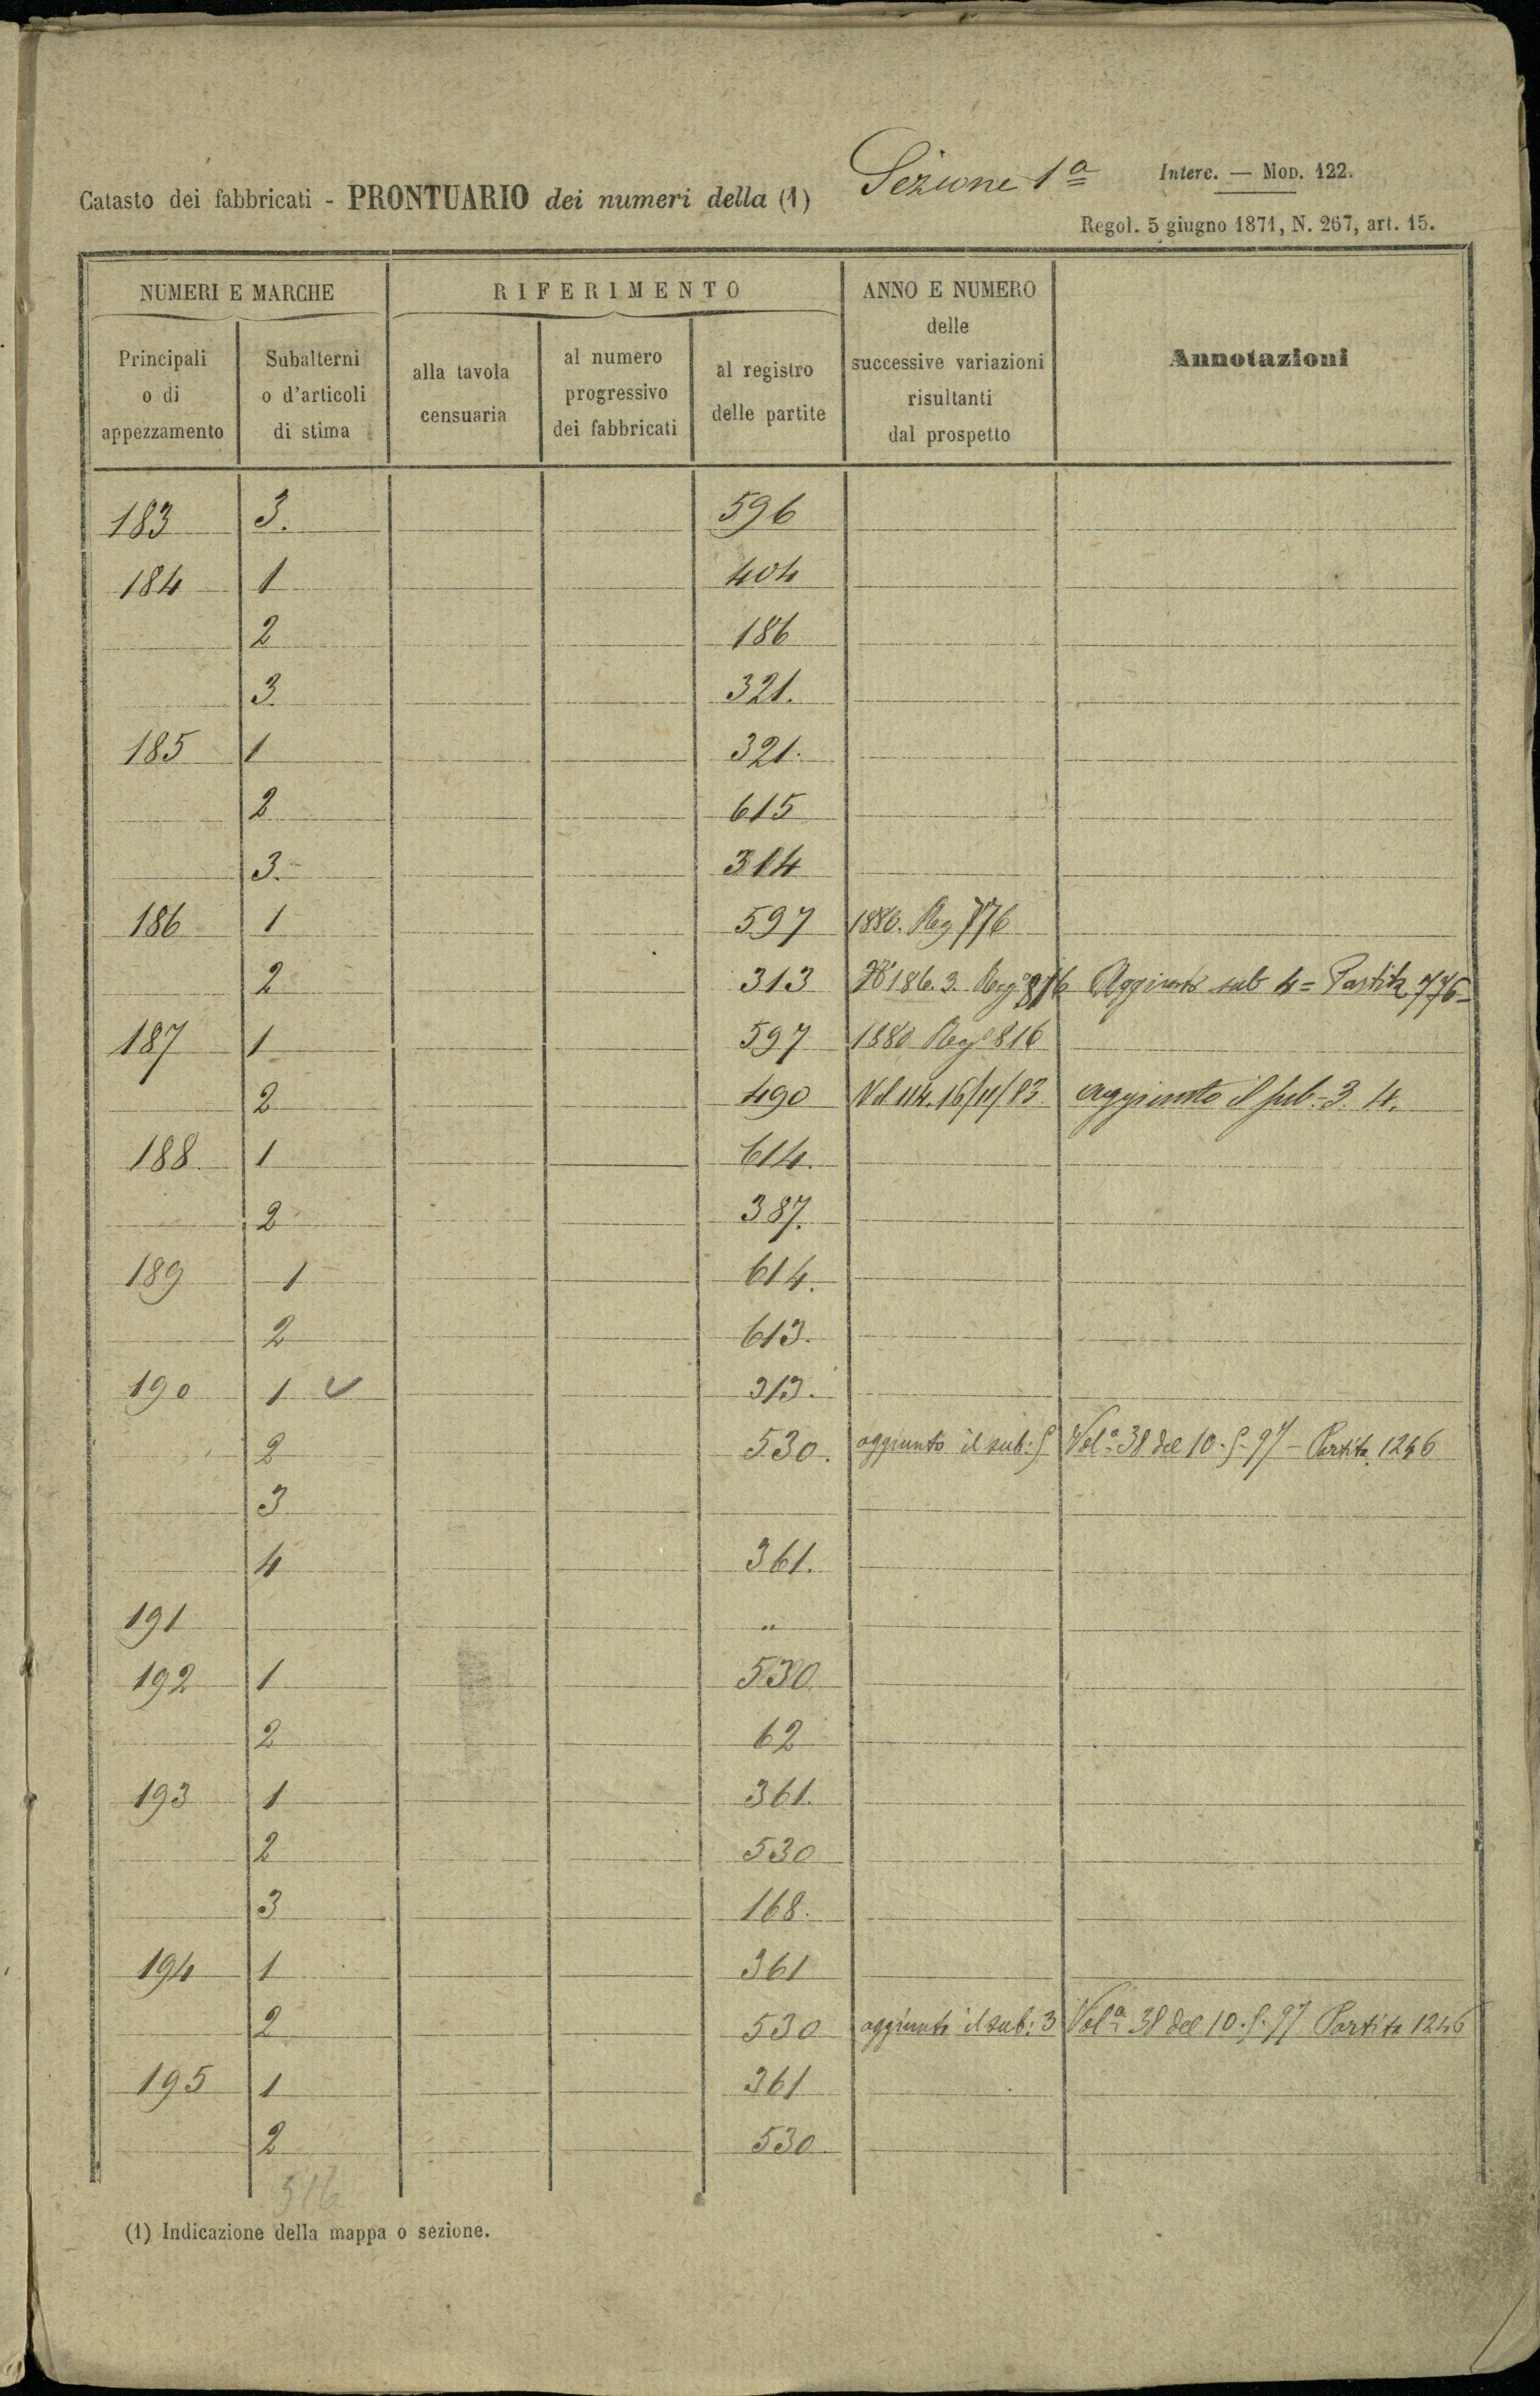 Catasto dei fabbricati - PRONTUARIO dei numeri della (1) Sezione 1ª
Interc. — Mod. 122.
Regol. 5 giugno 1871, N. 267, art. 15.
NUMERI E MARCHE
RIFERIMENTO
ANNO E NUMERO
delle
successive variazioni
risultanti
dal prospetto
Annotazioni
Principali
o di
appezzamento
Subalterni
o d'articoli
di stima
alla tavola
censuaria
al numero
progressivo
dei fabbricati
al registro
delle partite
183 3. 596
184 1 404
2 186
3. 321.
185 1 321.
2 615
3. 314
186 1 597 1880. Reg 776
2 313 186. 3. Reg. 816 Aggiunto sub 4 = Partita 776
187 1 597 1880 Reg 816
2 490 Vol 114. 16/11/83. aggiunto il sub. 3. 4.
188 1 614.
2 387.
189 1 614.
2 613.
190 1 313.
2 530. aggiunto il sub: 5 Volª 38 del 10-5-97 - Partita 1246
3
4 361.
191 "
192 1 530.
2 62
193 1 361.
2 530
3 168.
194 1 361
2 530 aggiunto il sub: 3 Volª 38 del 10.5.97 Partita 1246
195 1 361
2 530
516
(1) Indicazione della mappa o sezione.